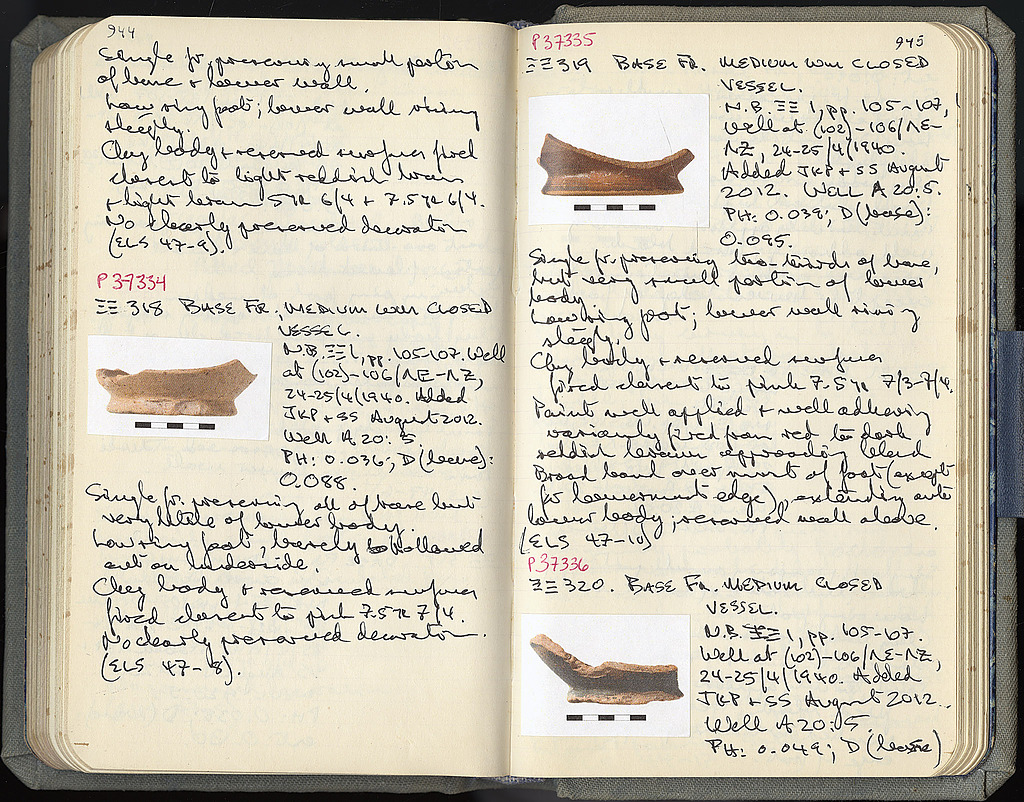 944
Single fr. preserving small portion
of base + lower wall.
Low ring foot; lower wall rising
steeply.
Clay body + reserved surfaces fired
closest to light reddish brown
+ light brown 5YR 6/4 + 7.5YR 6/4.
No clearly preserved decoration
(ELS 47-9).
P 37334
ΞΞ 318 BASE FR. MEDIUM WM CLOSED
VESSEL.
N.B. ΞΞ 1, pp. 105-107. Well
at (102)-106/ΝΕ-ΝΖ,
24-25/4/1940. Added
JKP + SS August 2012.
Well A 20:5.
PH: 0.036; D (base):
0.088.
Single fr. preserving all of base but
very little of lower body.
Low ring foot, barely hollowed
out on underside.
Clay body + reserved surfaces
fired closest to pink 7.5YR 7/4.
No clearly preserved decoration.
(ELS 47-8).
945
P 37335
ΞΞ 319 BASE FR. MEDIUM WM CLOSED
VESSEL.
N.B. ΞΞ 1, pp. 105-107,
Well at (102)-106/ΝΕ-
ΝΖ, 24-25/4/1940.
Added JKP + SS August
2012. WELL A 20:5.
PH: 0.039; D (base):
0.095.
Single fr. preserving two-thirds of base,
but very small portion of lower
body.
Low ring foot; lower wall rising
steeply.
Clay body + reserved surfaces
fired closest to pink 7.5YR 7/3-7/4.
Paint well applied + well adhering
variously fired from red to dark
reddish brown approaching black
Broad band over most of foot (except
for lowermost edge), extending onto
lower body; reserved wall above.
(ELS 47-10)
P 37336
ΞΞ 320. BASE FR. MEDIUM CLOSED
VESSEL.
N.B. ΞΞ 1, pp. 105-107.
Well at (102)-106/ΝΕ-ΝΖ,
24-25/4/1940. Added
JKP + SS August 2012.
Well A 20:5.
PH: 0.049; D (base)